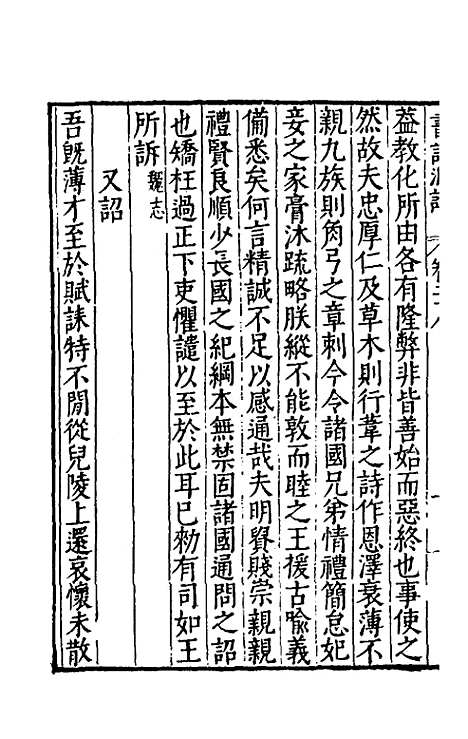 葢教化所由各有隆弊非皆善始而惡終也事使之
然故夫忠厚仁及草木則行葦之詩作恩澤衰薄不
親九族則角弓之章刺今令諸國兄弟情禮簡怠妃
妾之家膏沐疏略朕縱不能敦而睦之王援古喻義
備悉矣何言精誠不足以感通哉夫明貴賤崇親親
禮賢良順少長國之紀綱本無禁固諸國通問之詔
也矯枉過正下吏懼譴以至於此耳已勑有司如王
所訴魏志
又詔
吾旣薄才至於賦誄特不閒從兒陵上還哀懷未散